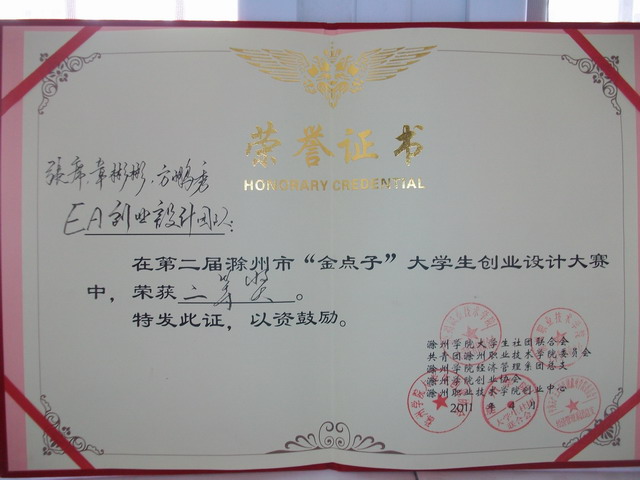 荣誉证书
HONORARY CREDENTIAL
EA创业設計团队:
在第二届滁州市“金点子”大学生创业设计大赛
中，荣获二等奖。
特发此证，以资鼓励。
滁州学院大学生社团联合会
共青团滁州职业技术学院委员会
滁州学院经济管理系团总支
滁州学院创业协会
滁州职业技术学院创业中心
2011 年 月